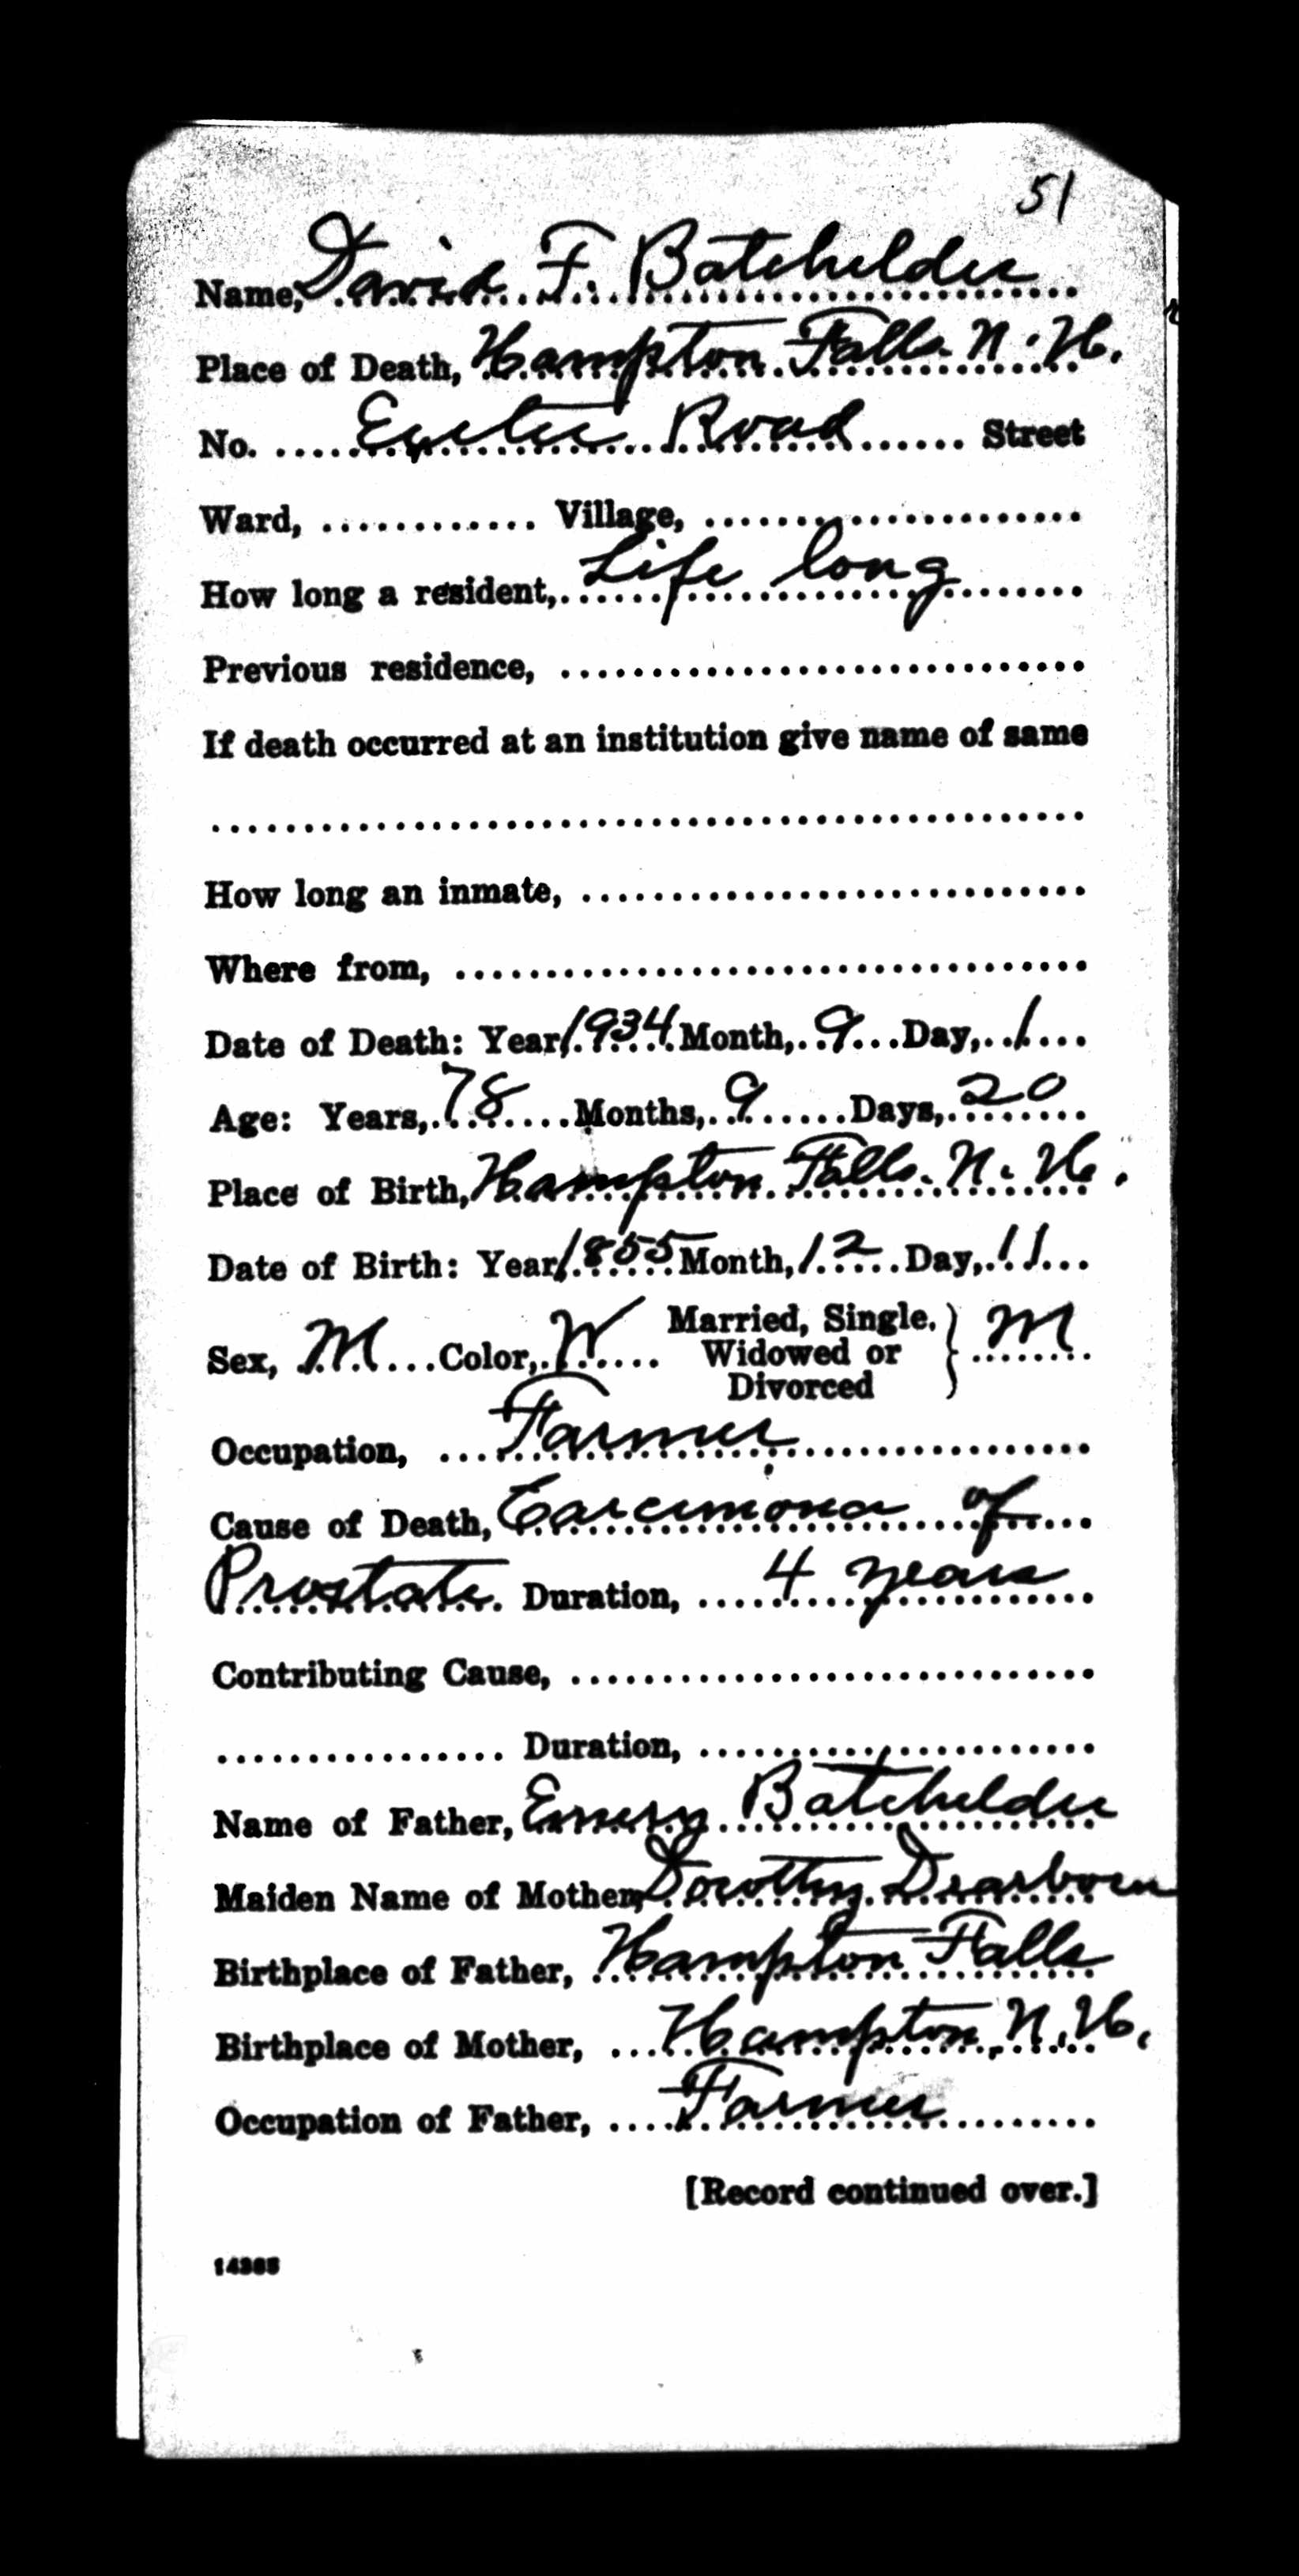 51
Name, David F. Batchelder
Place of Death, Hampton Falls. N. H.
No. Exeter Road Street
Ward, Village,
How long a resident, Life long
Previous residence,
If death occurred at an institution give name of same
How long an inmate,
Where from,
Date of Death: Year, 1934 Month, 9 Day, 1
Age: Years, 78 Months, 9 Days, 20
Place of Birth, Hampton Falls. N. H.
Date of Birth: Year, 1855 Month, 12 Day, 11
Sex, M Color, W Married, Single, Widowed or Divorced } M
Occupation, Farmer
Cause of Death, Carcinoma of
Prostate. Duration, 4 years
Contributing Cause,
Duration,
Name of Father, Emery Batchelder
Maiden Name of Mother, Dorothy Dearborn
Birthplace of Father, Hampton Falls
Birthplace of Mother, Hampton, N. H.
Occupation of Father, Farmer
[Record continued over.]